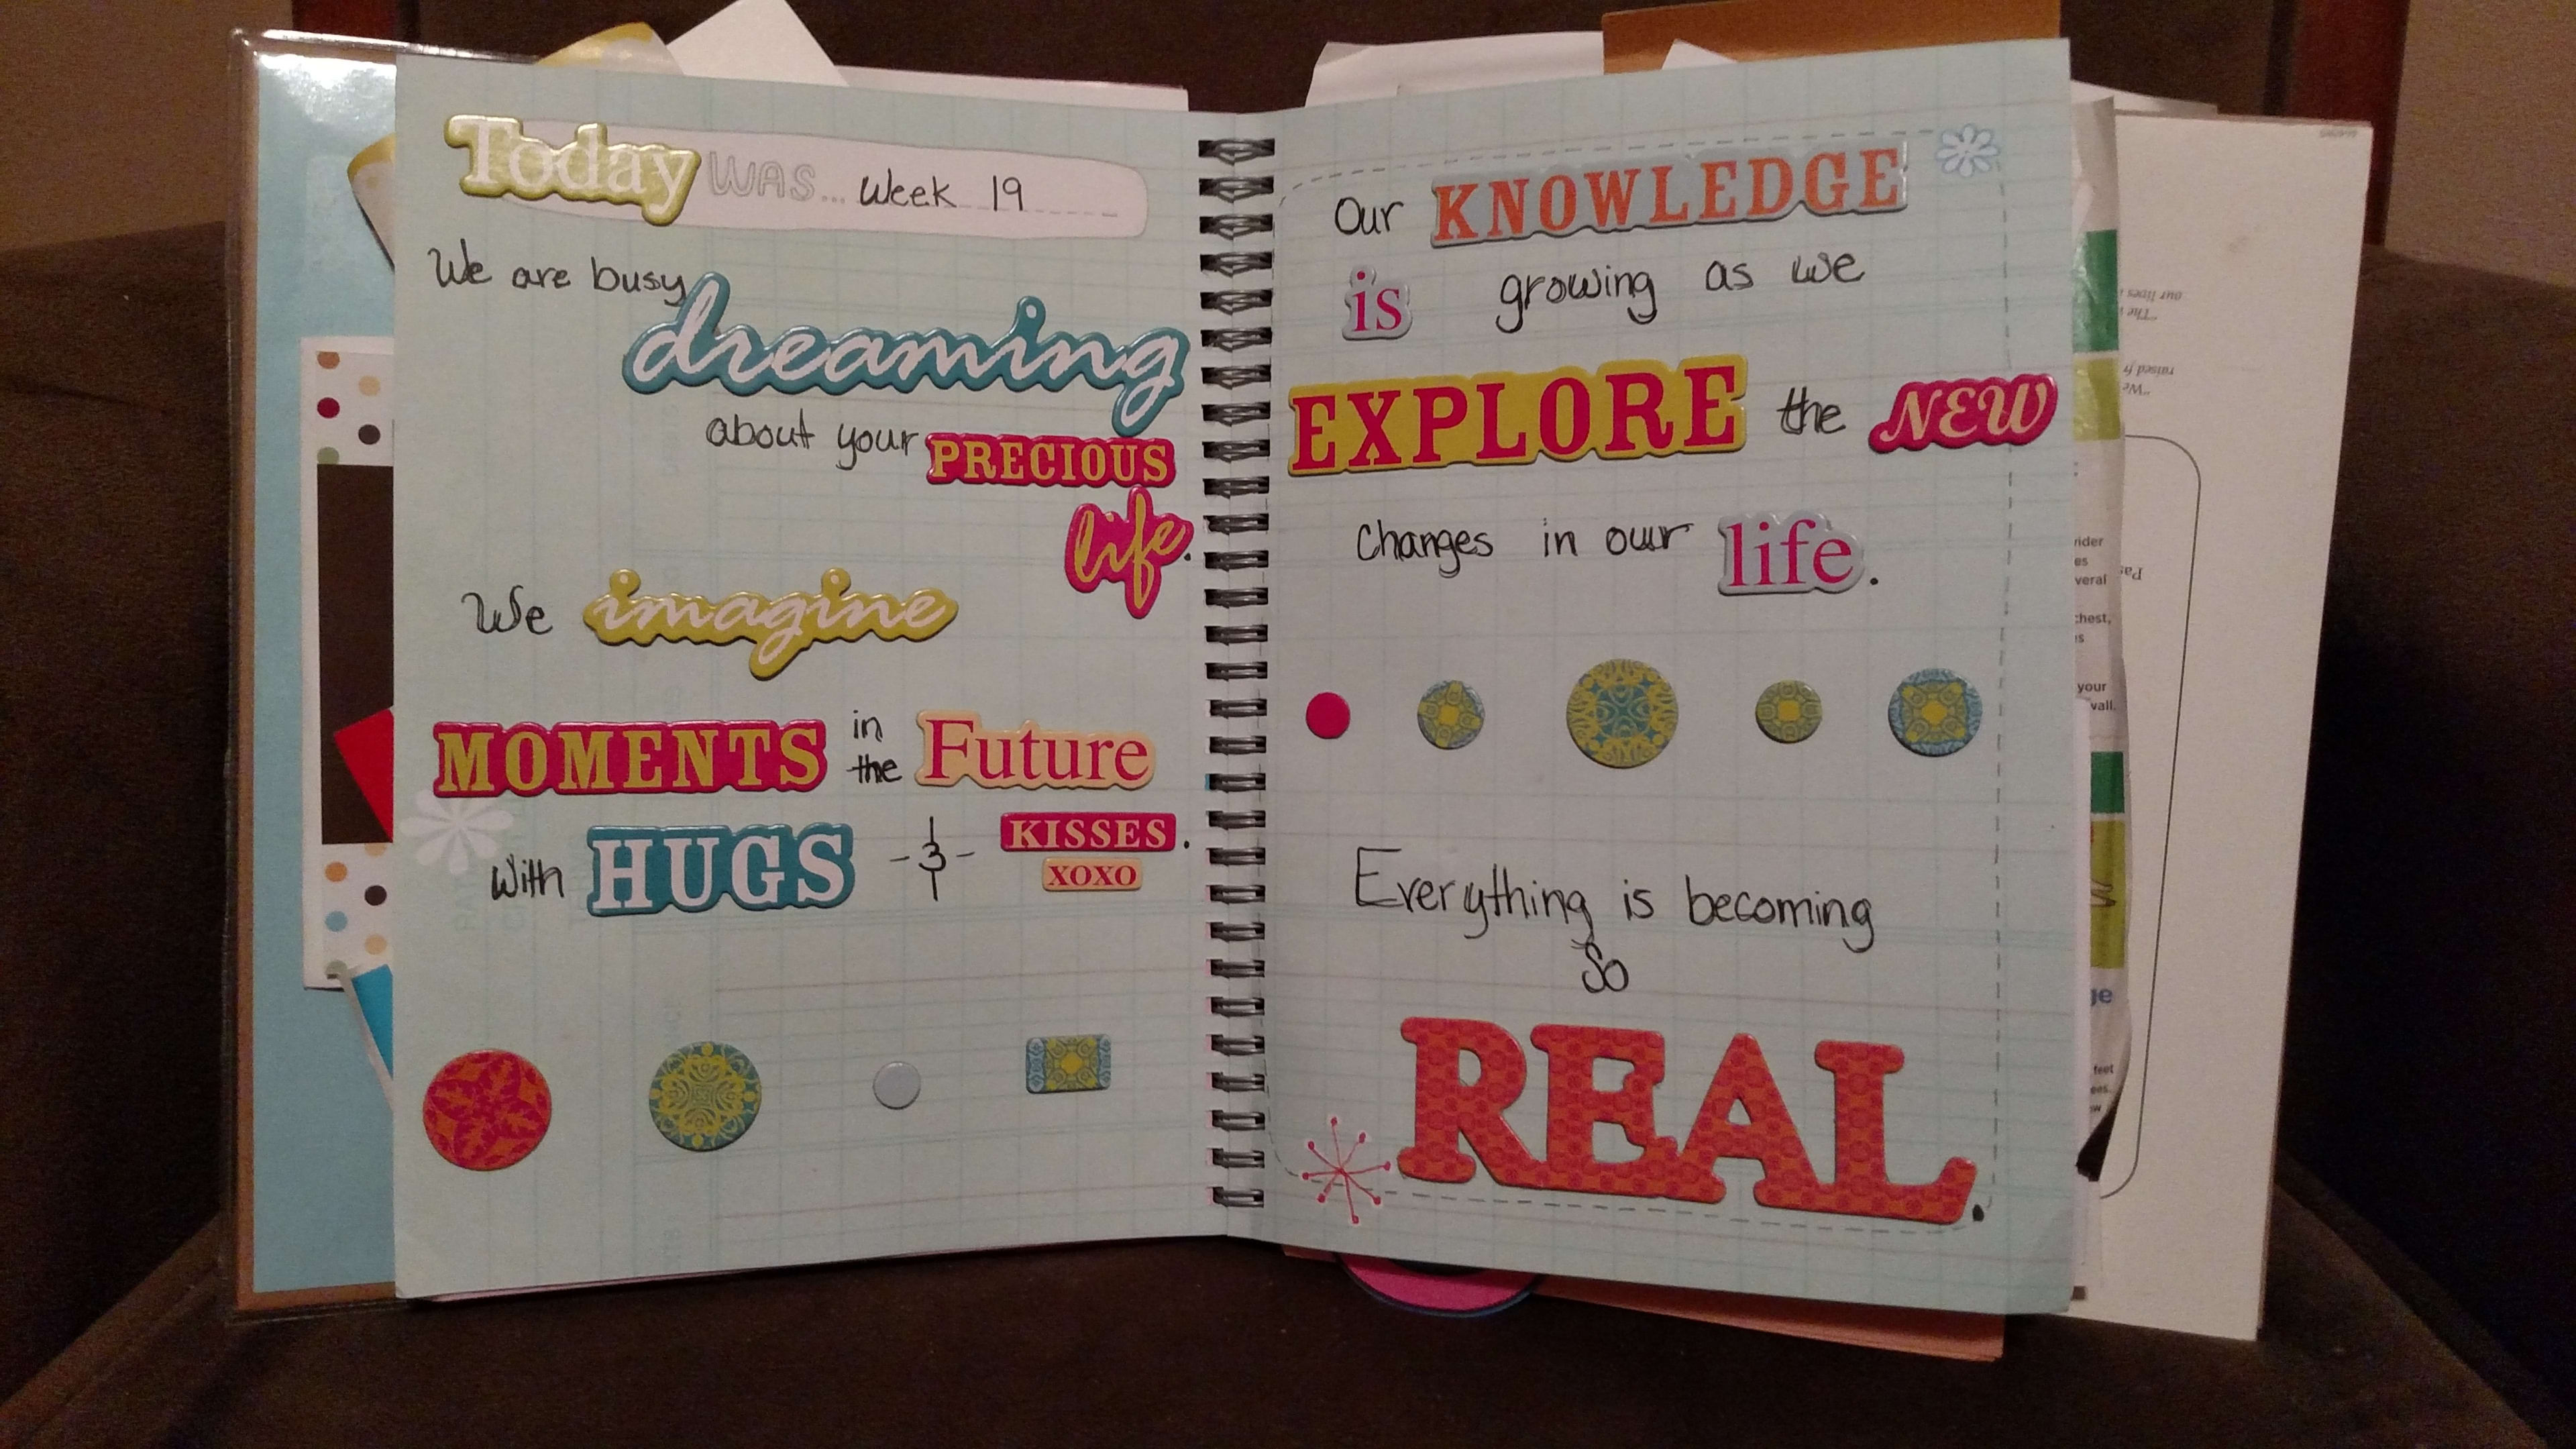 Today WAS... Week 19
We are busy
dreaming
about your PRECIOUS
life.
We imagine
MOMENTS in the Future
with HUGS & KISSES.
XOXO
Our KNOWLEDGE
is growing as we
EXPLORE the NEW
changes in our life.
Everything is becoming
So
REAL.
our lives
"The
raised f
"We
rider
es
veral
Pas
chest,
is
your
wall.
ge
feet
ees.
ew